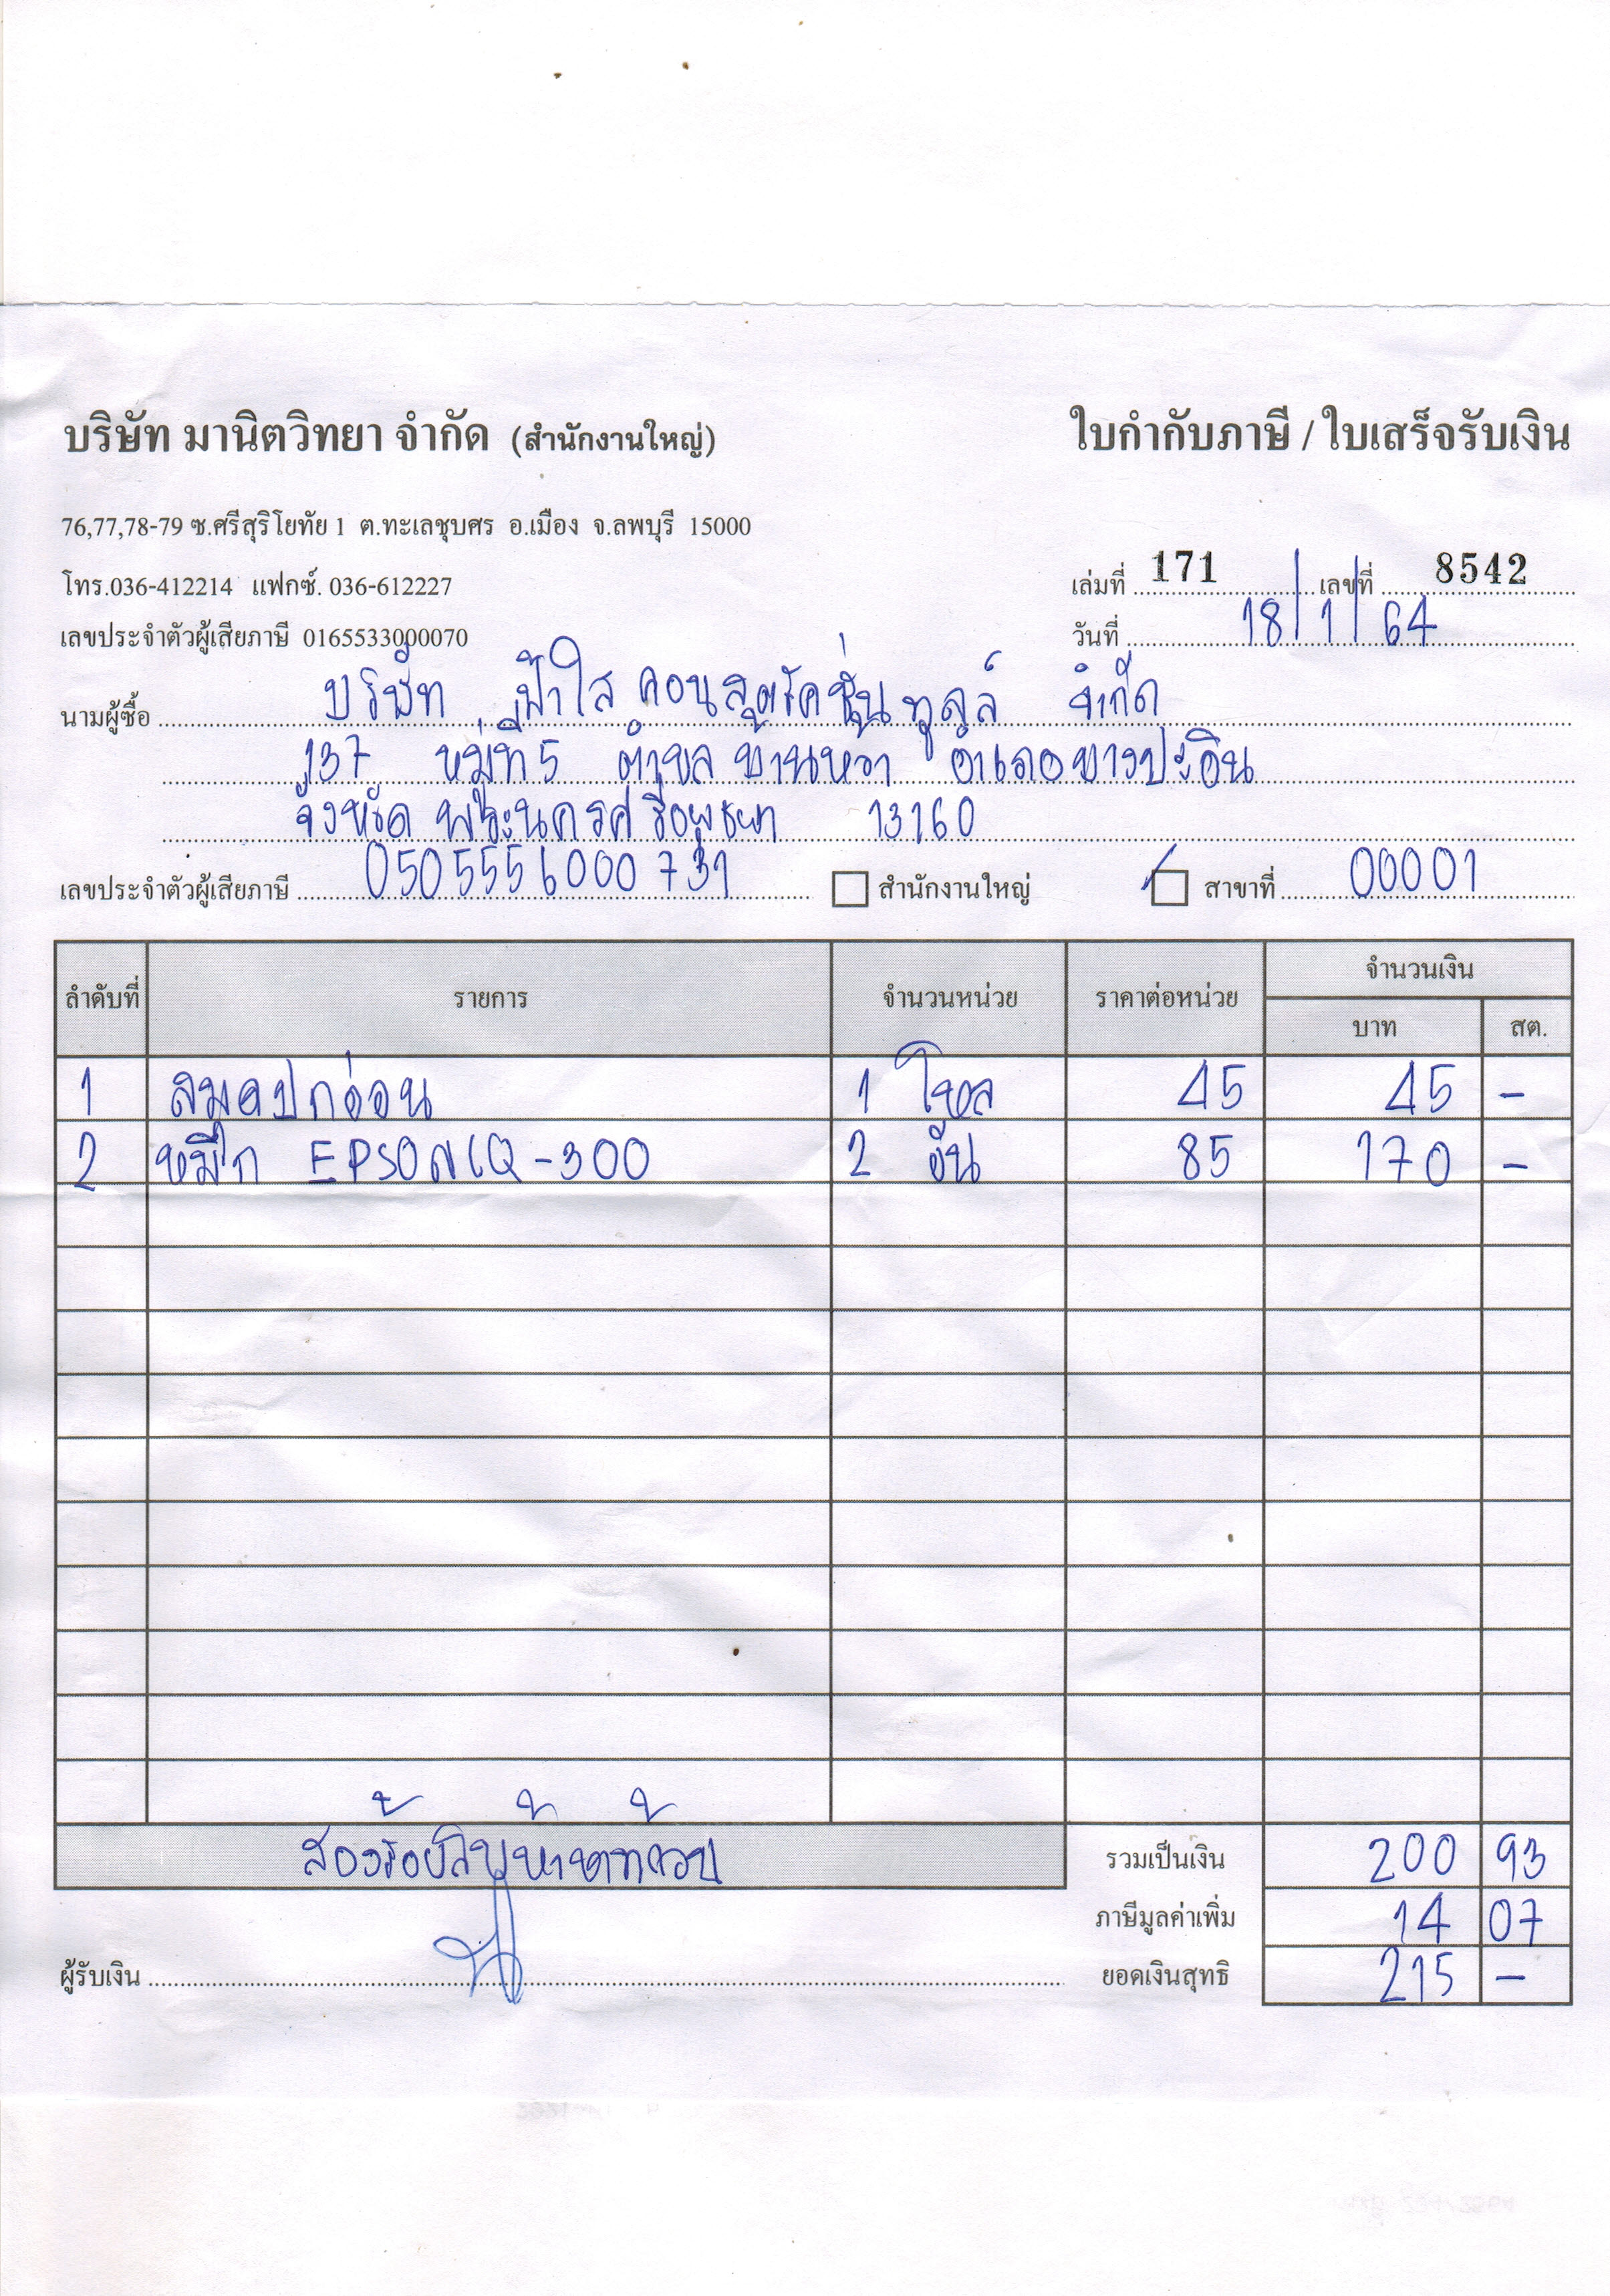 บริษัท มานิตวิทยา จำกัด (สำนักงานใหญ่)
ใบกำกับภาษี / ใบเสร็จรับเงิน
76,77,78-79 ซ.ศรีสุริโยทัย 1 ต.ทะเลชุบศร อ.เมือง จ.ลพบุรี 15000
โทร.036-412214 แฟกซ์. 036-612227
เล่มที่ 171 เลขที่ 8542
เลขประจำตัวผู้เสียภาษี 0165533000070
วันที่ 18/1/64
นามผู้ซื้อ บริษัท ฟ้าใส คอนสตรัคชั่น ทูลส์ จำกัด
137 หมู่ที่ 5 ตำบล บ้านหว้า อำเภอ บางปะอิน
จังหวัด พระนครศรีอยุธยา 13160
เลขประจำตัวผู้เสียภาษี 0505556000731 สำนักงานใหญ่ สาขาที่ 00001
ลำดับที่ รายการ จำนวนหน่วย ราคาต่อหน่วย จำนวนเงิน
บาท สต.
1 สมุดปกอ่อน 1 โหล 45 45 -
2 หมึก EPSON LQ-300 2 อัน 85 170 -
สองร้อยสิบห้าบาทถ้วน
รวมเป็นเงิน 200 93
ภาษีมูลค่าเพิ่ม 14 07
ผู้รับเงิน
ยอดเงินสุทธิ 215 -